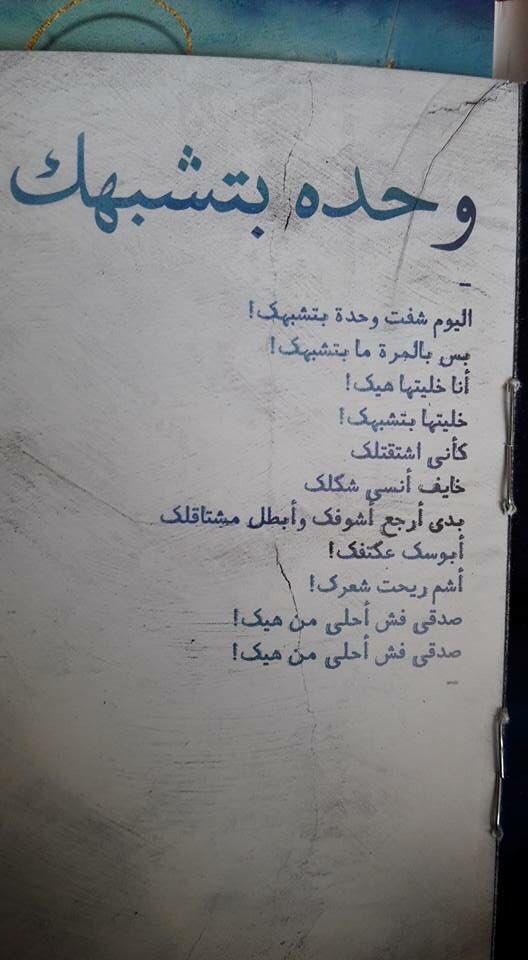 وحده بتشبهك
اليوم شفت وحدة بتشبهك!
بس بالمرة ما بتشبهك!
أنا خليتها هيك!
خليتها بتشبهك!
كأني اشتقتلك
خايف أنسى شكلك
بدي أرجع أشوفك وأبطل مشتاقلك
أبوسك عكتفك!
أشم ريحت شعرك!
صدقي فش أحلى من هيك!
صدقي فش أحلى من هيك!